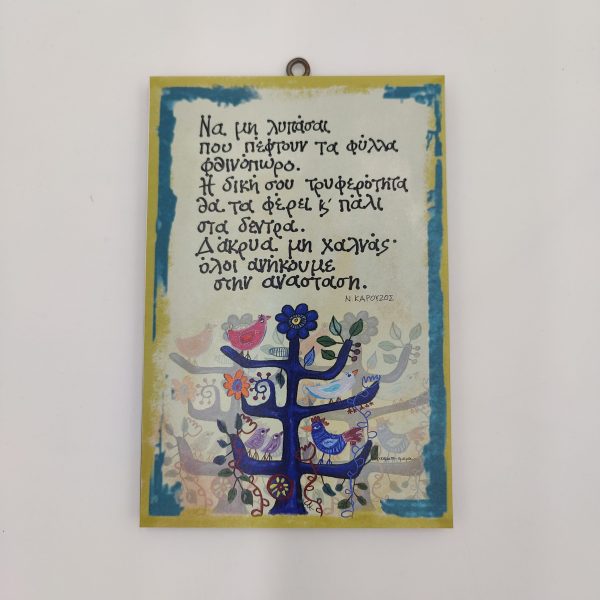 Να μη λυπάσαι
που πέφτουν τα φύλλα
φθινόπωρο.
Η δική σου τρυφερότητα
θα τα φέρει κ' πάλι
στα δέντρα.
Δάκρυα μη χαλνάς·
όλοι ανήκουμε
στην ανάσταση.
Ν. ΚΑΡΟΥΖΟΣ